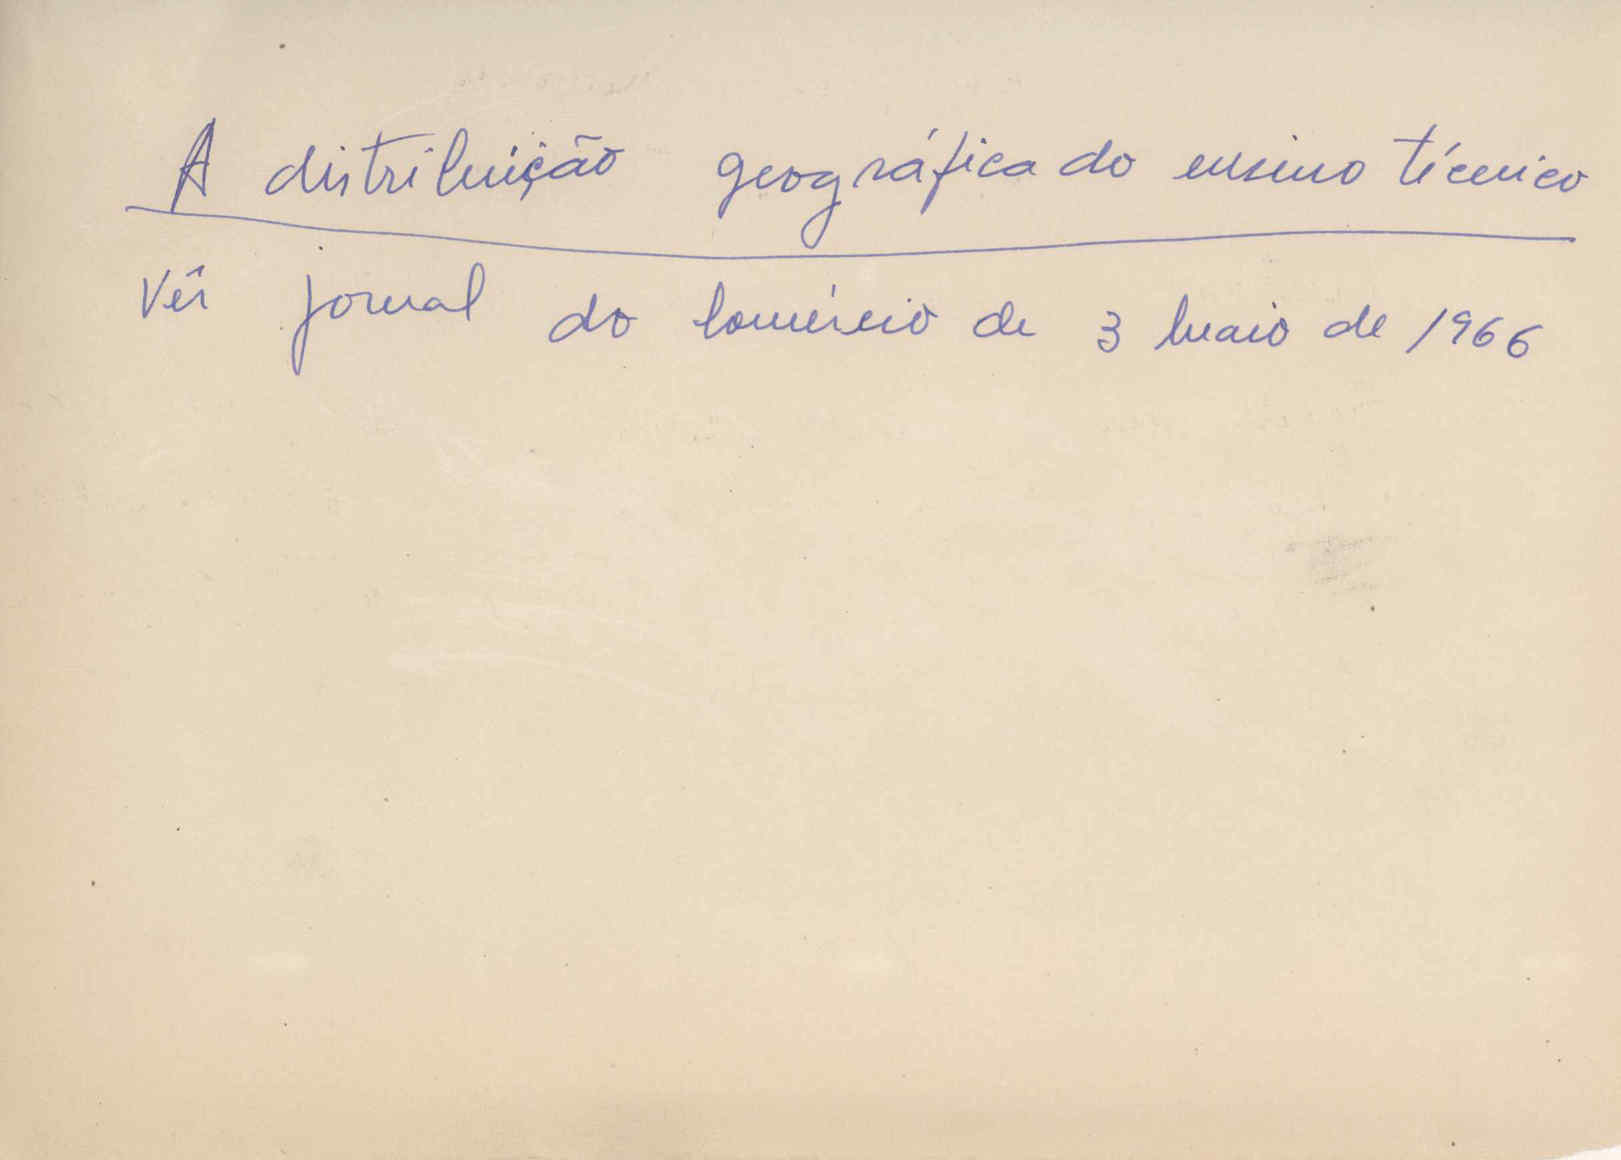 A distribuição geográfica do ensino técnico
Vêr jornal do Comércio de 3 maio de 1966